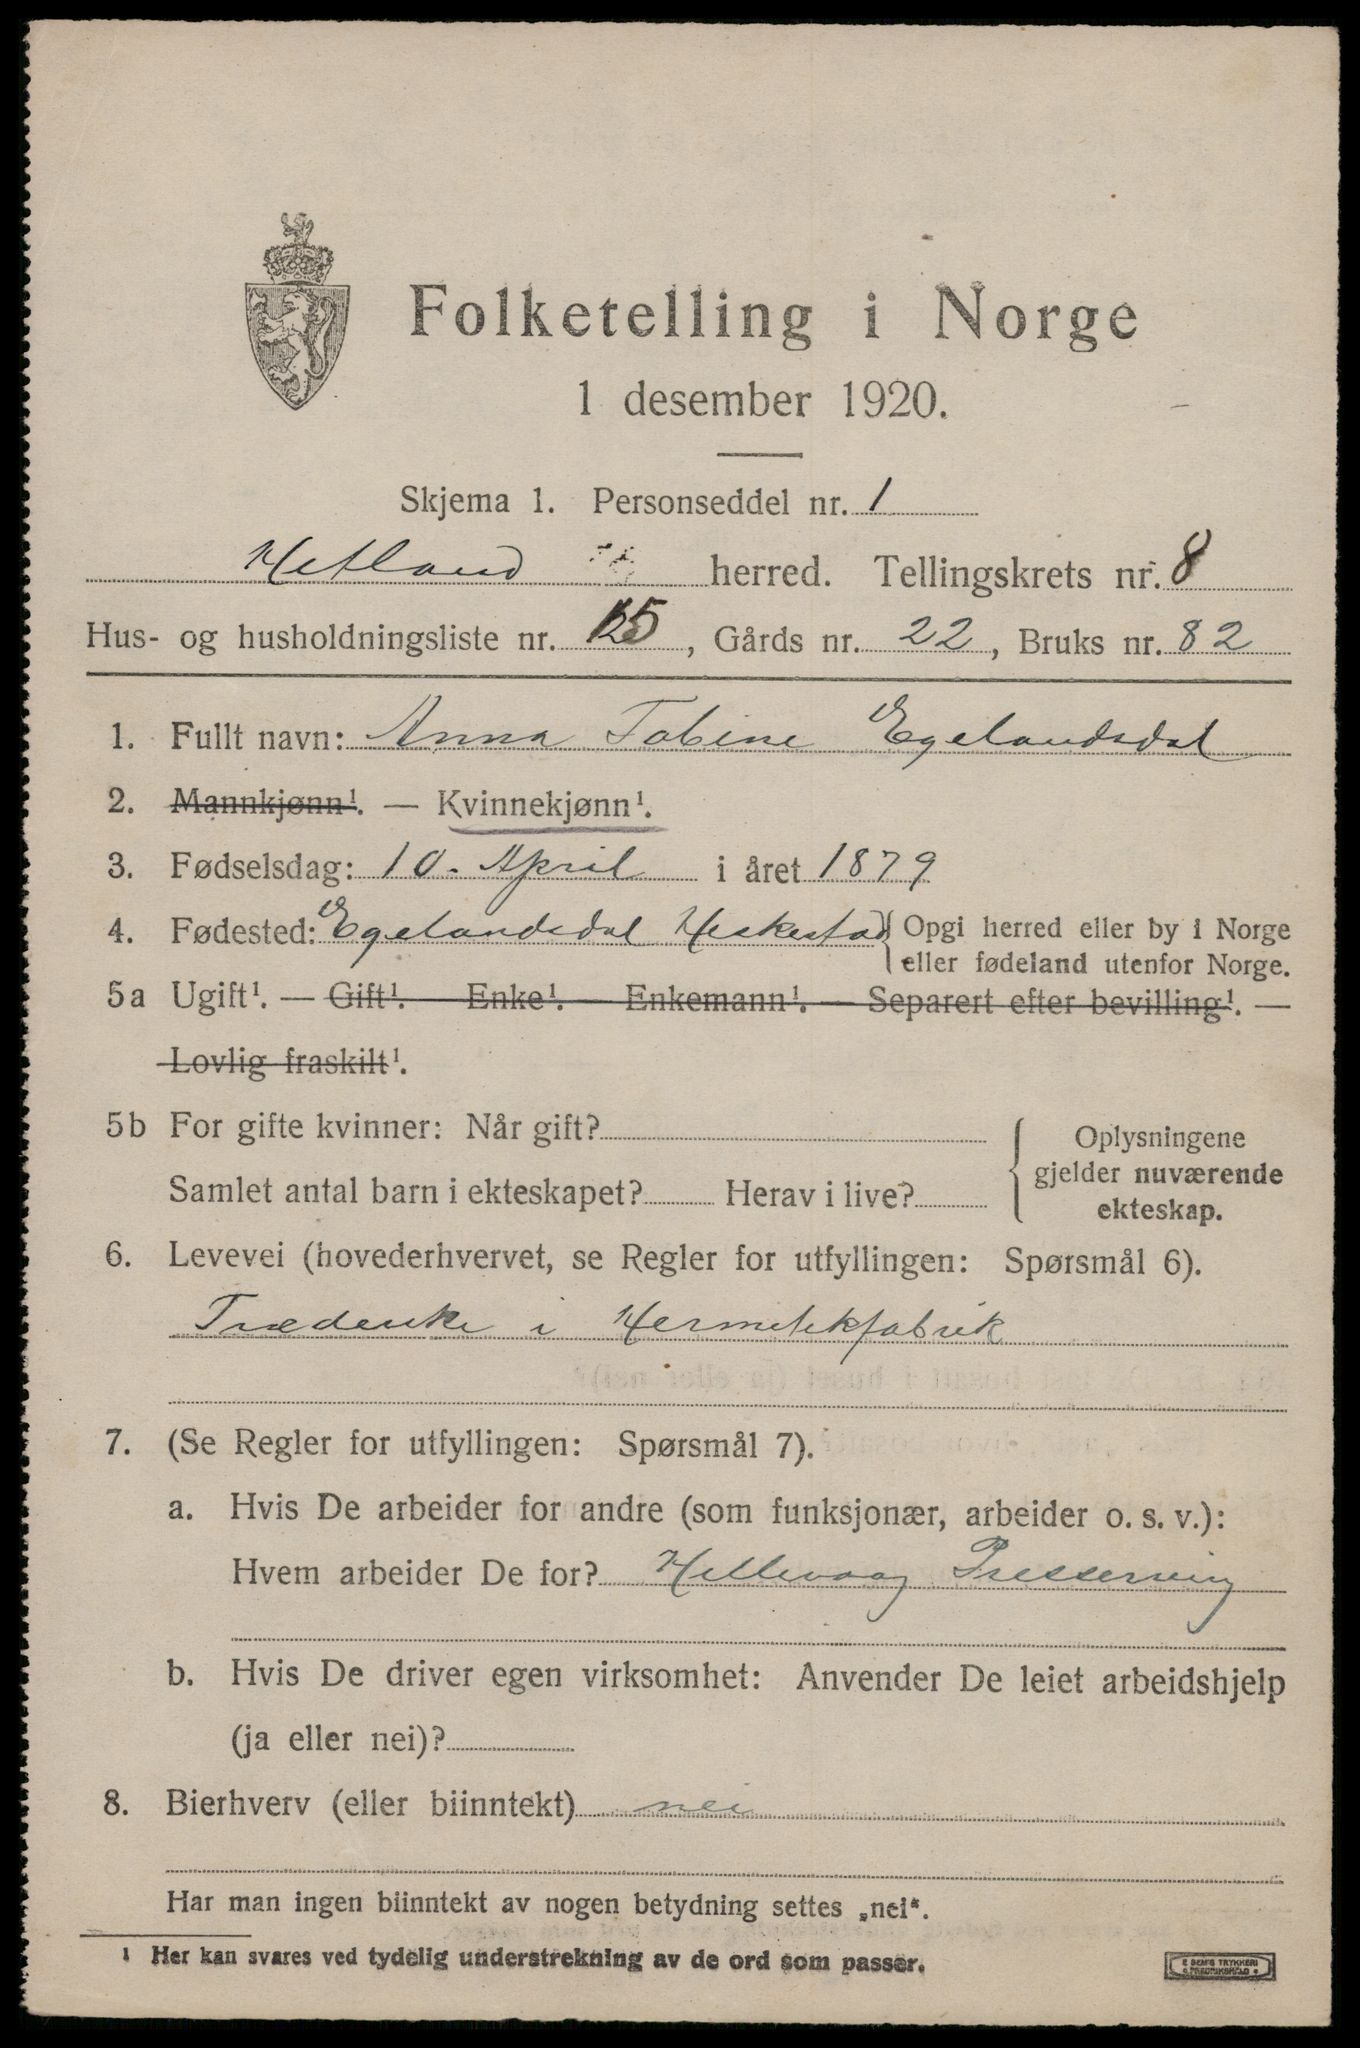 Folketelling i Norge
1 desember 1920.
Skjema 1. Personseddel nr. 1
Hetland herred. Tellingskrets nr. 8
Hus- og husholdningsliste nr. 15, Gårds nr. 22, Bruks nr. 82
1. Fullt navn: Anna Tobine Egelandsdal
2. Mannkjønn¹. — Kvinnekjønn¹.
3. Fødselsdag: 10. April i året 1879
4. Fødested: Egelandsdal Heskestad { Opgi herred eller by i Norge
eller fødeland utenfor Norge.
5a Ugift¹. — Gift¹. — Enke¹. — Enkemann¹. — Separert efter bevilling¹. —
Lovlig fraskilt¹.
5b For gifte kvinner: Når gift?
Samlet antal barn i ekteskapet? Herav i live?
Oplysningene
gjelder nuværende
ekteskap.
6. Levevei (hovederhvervet, se Regler for utfyllingen: Spørsmål 6).
Træderske i Hermetikfabrik
7. (Se Regler for utfyllingen: Spørsmål 7).
a. Hvis De arbeider for andre (som funksjonær, arbeider o. s. v.):
Hvem arbeider De for? Hellevaag Preserving
b. Hvis De driver egen virksomhet: Anvender De leiet arbeidshjelp
(ja eller nei)?
8. Bierhverv (eller biinntekt) nei
Har man ingen biinntekt av nogen betydning settes „nei“.
¹ Her kan svares ved tydelig understrekning av de ord som passer.
E SEM'S TRYKKERI
FREDRIKSHALD